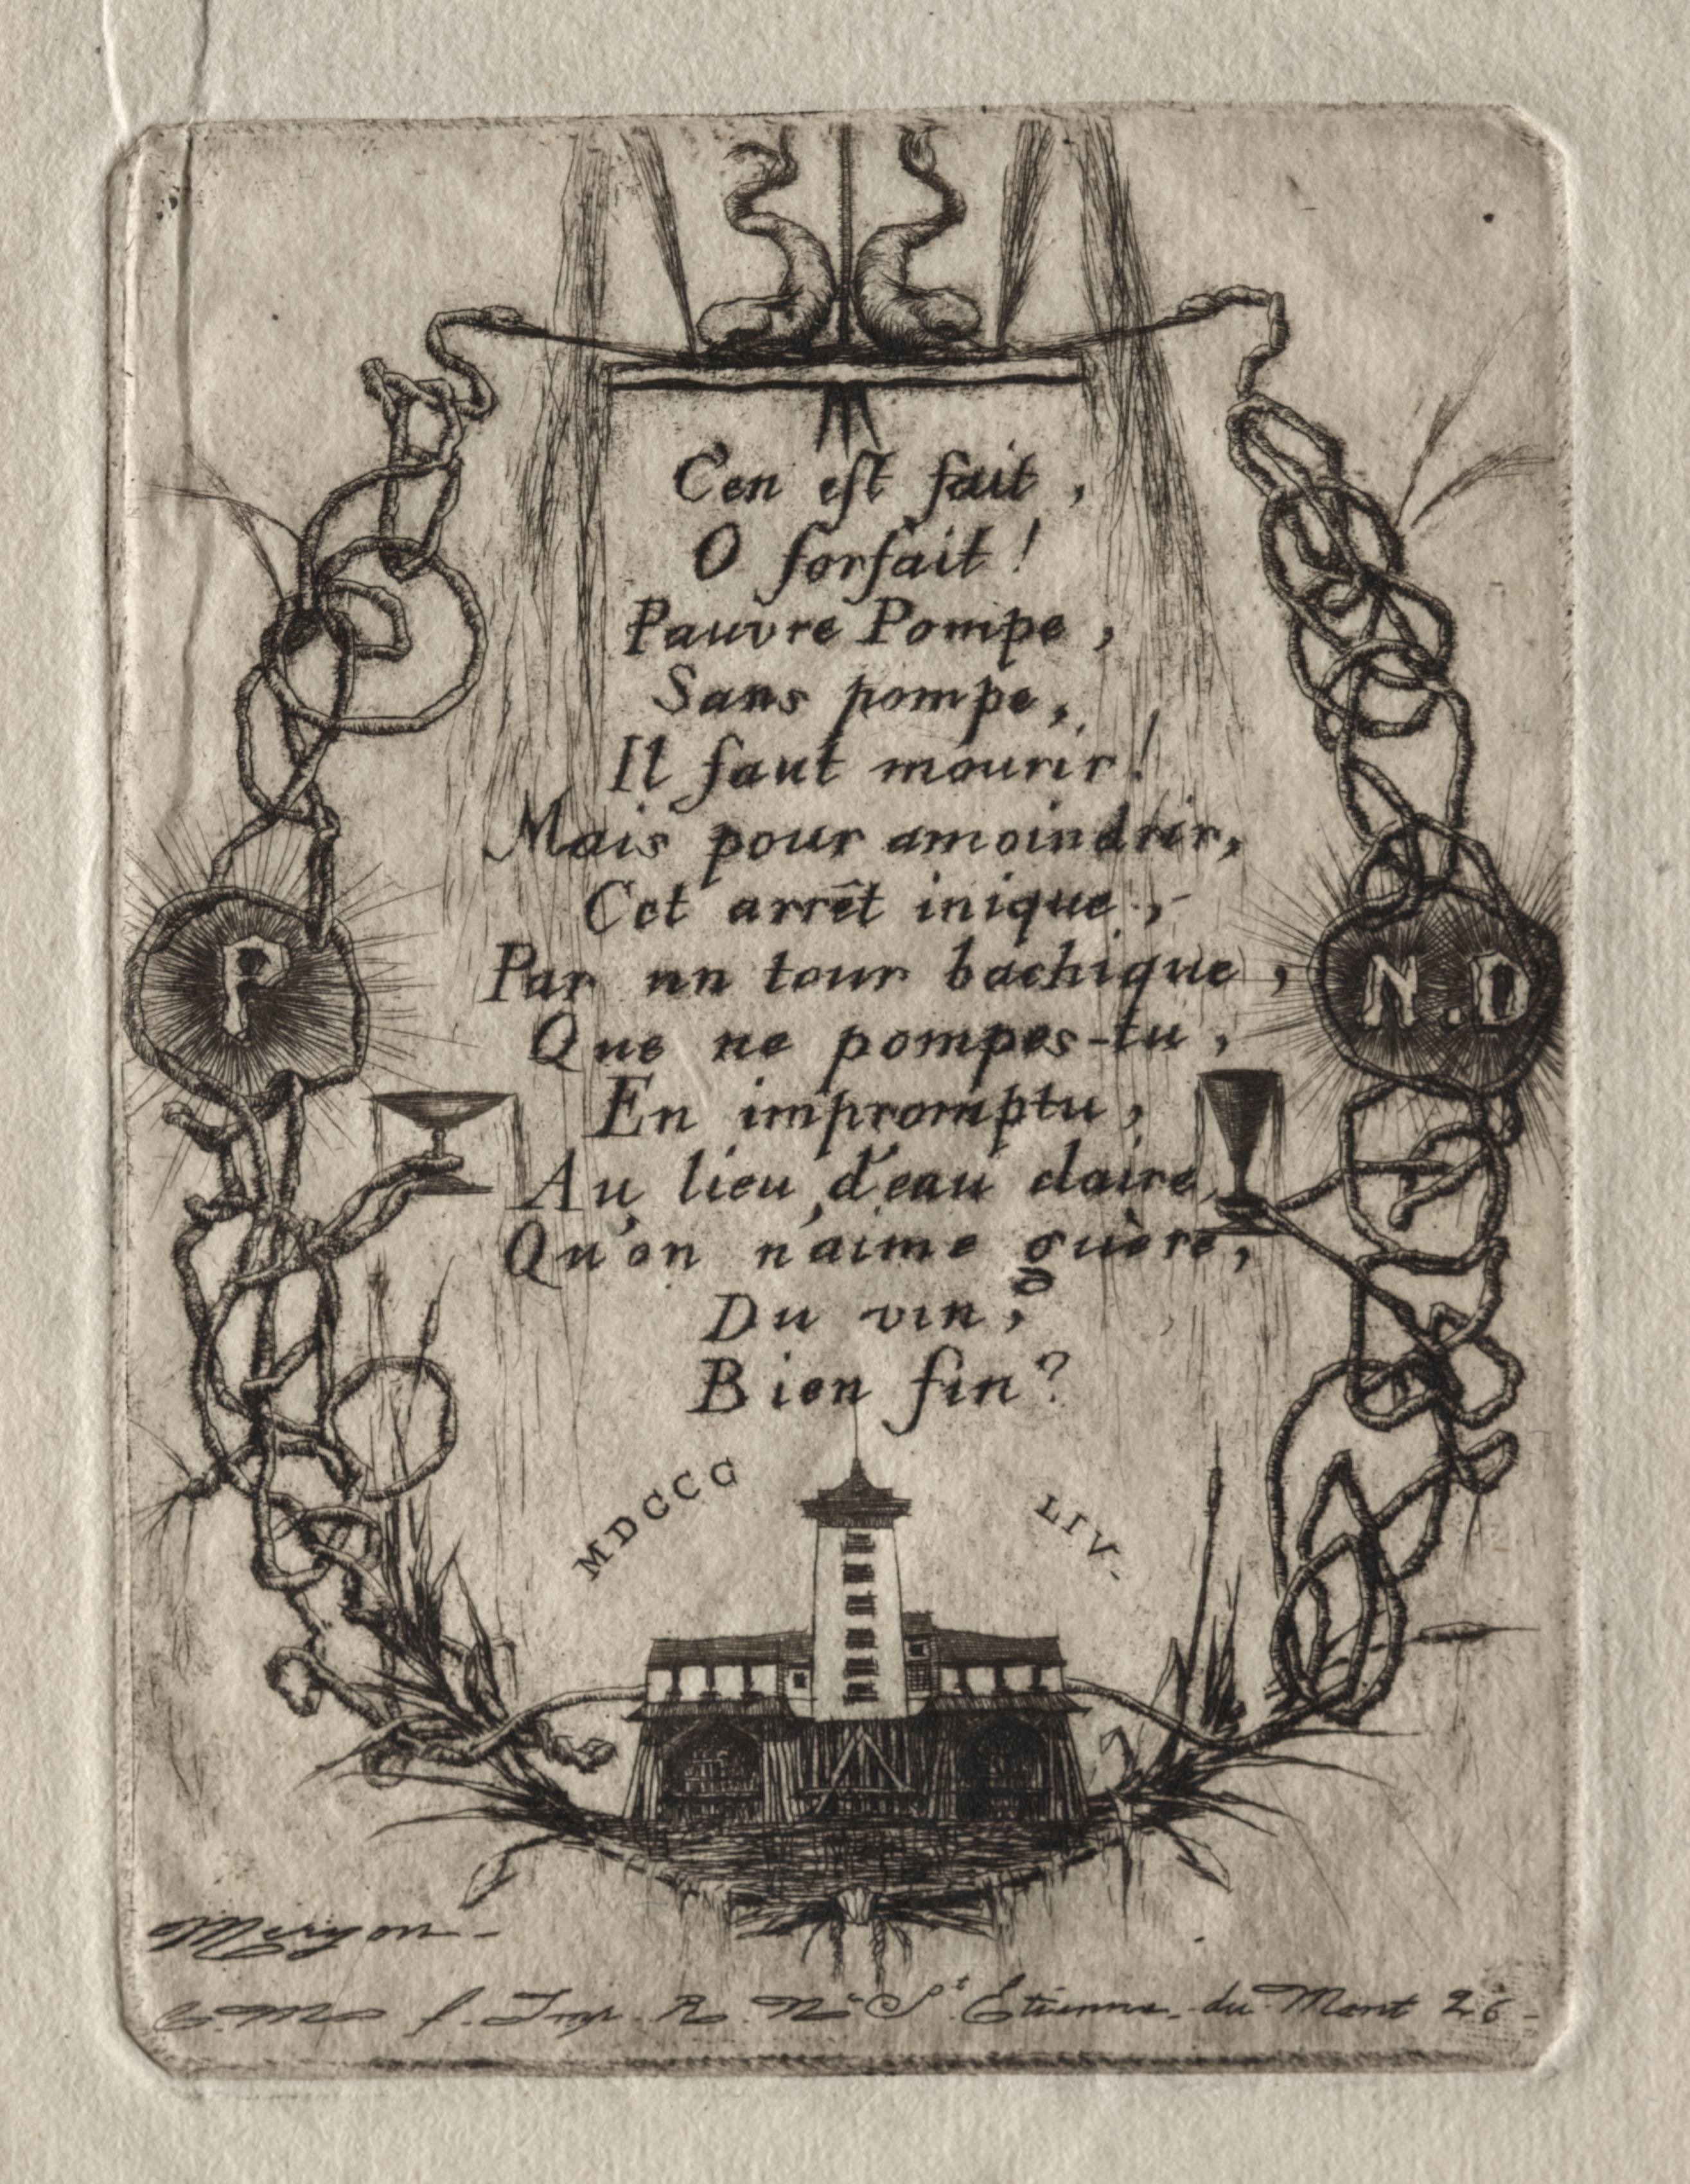 C'en est fait,
O forfait!
Pauvre Pompe,
Sans pompe,
Il faut mourir!
Mais pour amoindrir,
Cet arrêt inique,
Par un tour bachique,
Que ne pompes-tu,
En impromptu,
Au lieu d'eau claire,
Qu'on n'aime guère,
Du vin,
Bien fin?
MDCCC LIV-
P
N.D
Meryon-
C. M. f. Imp. R. Nve St Etienne-du-Mont 26-